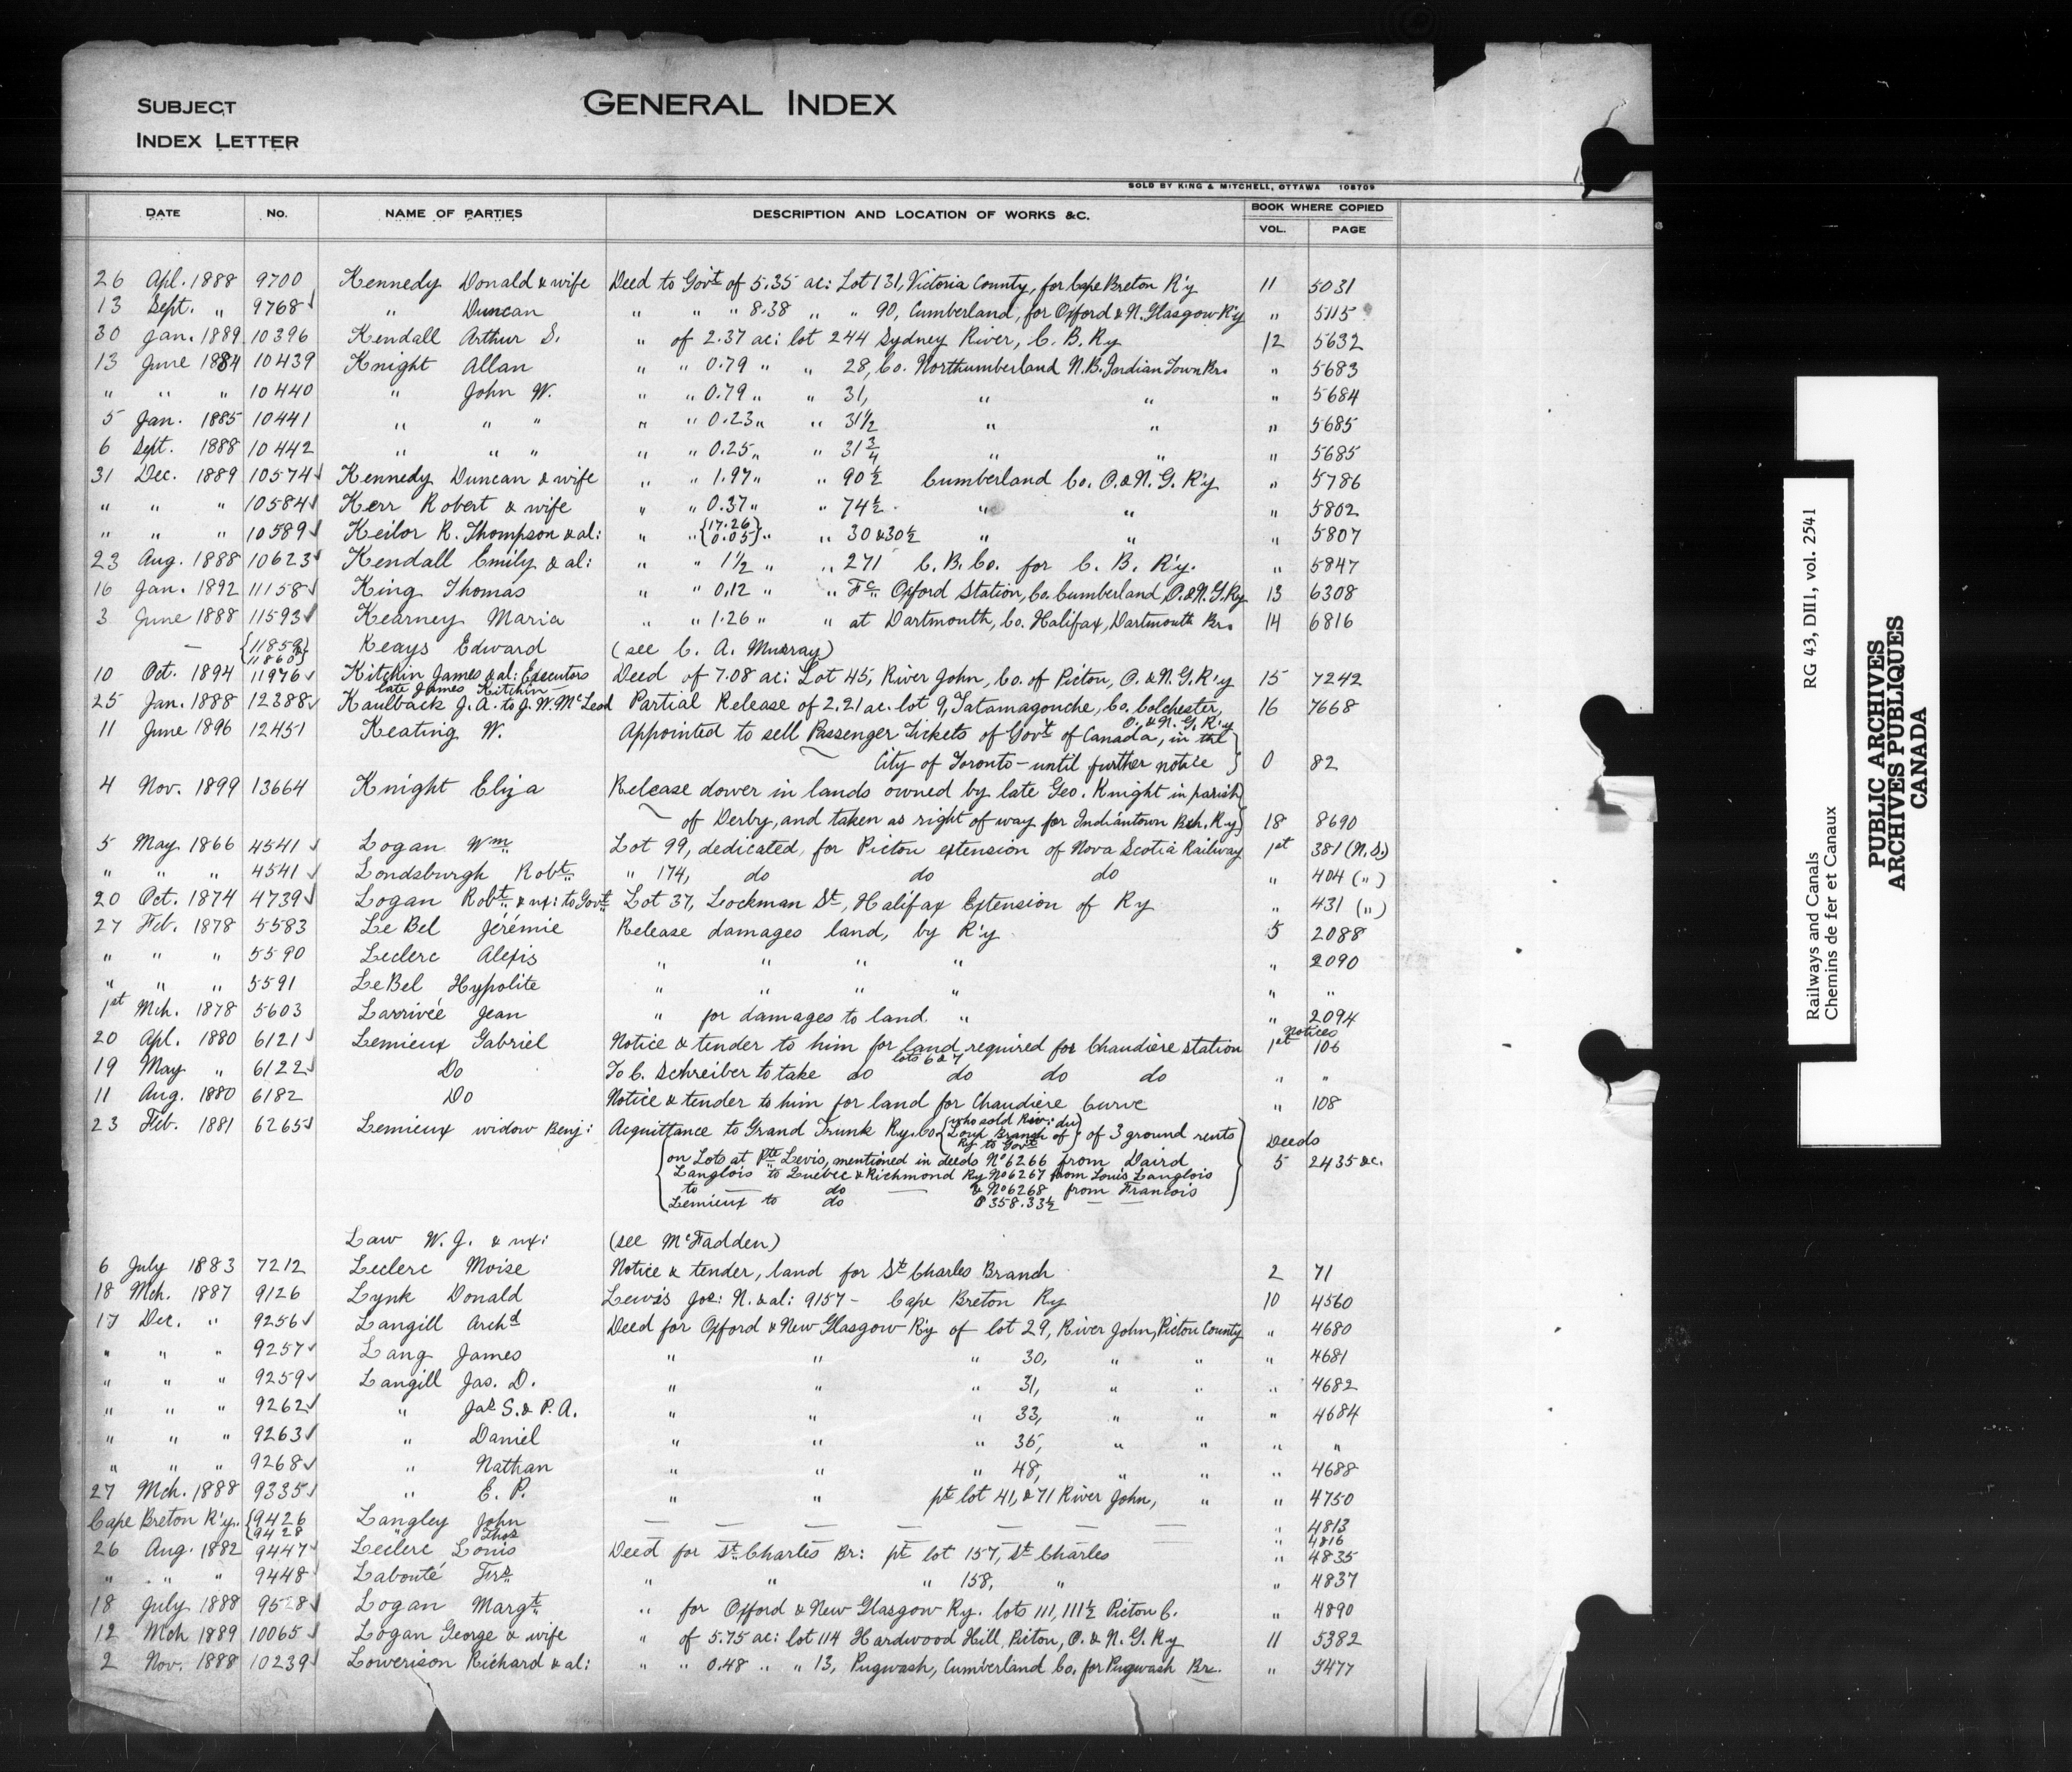 SUBJECT
INDEX LETTER
GENERAL INDEX
SOLD BY KING & MITCHELL, OTTAWA 108709
DATE No. NAME OF PARTIES DESCRIPTION AND LOCATION OF WORKS &C. BOOK WHERE COPIED
VOL. PAGE
26 Apl. 1888 9700 Kennedy Donald & wife Deed to Govt of 5.35 ac: Lot 131, Victoria County, for Cape Breton R'y 11 5031
13 Sept. " 9768✓ " Duncan " " " 8.38 " " 90, Cumberland, for Oxford & N. Glasgow R'y " 5115
30 Jan. 1889 10396 Kendall Arthur S. " of 2.37 ac: lot 244 Sydney River, C. B. Ry 12 5632
13 June 1884 10439 Knight Allan " " 0.79 " " 28, Co. Northumberland N.B. Indian Town Br. " 5683
" " " 10440 " John W. " " 0.79 " " 31, " " " 5684
5 Jan. 1885 10441 " " " " " 0.23 " " 31½ " " " 5685
6 Sept. 1888 10442 " " " " " 0.25 " " 31¾ " " " 5685
31 Dec. 1889 10574✓ Kennedy Duncan & wife " " 1.97 " " 90½ Cumberland Co. O. & N. G. R'y " 5786
" " " 10584✓ Kerr Robert & wife " " 0.37 " " 74½ " " " 5802
" " " 10589✓ Keilor R. Thompson & al: " " {17.26 0.05} " " 30 & 30½ " " " 5807
23 Aug. 1888 10623✓ Kendall Emily & al: " " 1½ " " 271 C. B. Co. for C. B. R'y. " 5847
16 Jan. 1892 11158✓ King Thomas " " 0.12 " " Fc. Oxford Station, Co. Cumberland, O. & N. G. Ry 13 6308
3 June 1888 11593✓ Kearney Maria " " 1.26 " " at Dartmouth, Co. Halifax, Dartmouth Br. 14 6816
— {11859 & 11860} Keays Edward (see C. A. Murray)
10 Oct. 1894 11976✓ Kitchin James & al: Executors Deed of 7.08 ac: Lot 45, River John, Co. of Pictou, O. & N. G. R'y 15 7242
late James Kitchin —
25 Jan. 1888 12388✓ Kaulback J. A. to J. W. McLeod Partial Release of 2.21 ac. lot 9, Tatamagouche, Co. Colchester, 16 7668
O. & N. G. R'y
11 June 1896 12451 Keating W. Appointed to sell Passenger Tickets of Govt of Canada, in the
City of Toronto – until further notice } 0 82
4 Nov. 1899 13664 Knight Eliza Release dower in lands owned by late Geo. Knight in parish
of Derby, and taken as right of way for Indiantown Bch. Ry} 18 8690
5 May 1866 4541✓ Logan Wm. Lot 99, dedicated, for Pictou extension of Nova Scotia Railway 1st 381 (N.S.)
" " " 4541✓ Londsburgh Robt. " 174, do do do " 404 (")
20 Oct. 1874 4739✓ Logan Robt. & ux: to Govt. Lot 37, Lockman St, Halifax Extension of Ry " 431 (")
27 Feb. 1878 5583 Le Bel Jérémie Release damages land, by R'y 5 2088
" " " 5590 Leclerc Alexis " " " " " 2090
" " " 5591 LeBel Hypolite " " " " " "
1st Mch. 1878 5603 Larrivée Jean " for damages to land " " 2094
Notices
20 Apl. 1880 6121✓ Lemieux Gabriel Notice & tender to him for land required for Chaudiere station 1st 106
lots 6 & 7
19 May " 6122✓ Do To C. Schreiber to take do do do do " "
11 Aug. 1880 6182 Do Notice & tender to him for land for Chaudiere Curve " 108
23 Feb. 1881 6265✓ Lemieux widow Benj: Acquittance to Grand Trunk Ry. Co. {who sold Riv: du Loup Branch of Ry to Govt} of 3 ground rents
on Lots at Pte Levis, mentioned in deeds No 6266 from David Deeds 5 2435 &c.
Langlois to Quebec & Richmond Ry No 6267 from Louis Langlois
to — do — & No 6268 from Francois
Lemieux to do $358.33½ — —
Law W. J. & ux: (see McFadden)
6 July 1883 7212 Leclerc Moise Notice & tender, land for St Charles Branch 2 71
18 Mch. 1887 9126 Lynk Donald Lewis Jos: N. & al: 9157 – Cape Breton Ry 10 4560
17 Dec. " 9256✓ Langill Archd Deed for Oxford & New Glasgow R'y of lot 29, River John, Pictou County " 4680
" " " 9257✓ Lang James " " " 30, " " " 4681
" " " 9259✓ Langill Jas. D. " " " 31, " " " 4682
" " " 9262✓ " Jas S. & P. A. " " " 33, " " " 4684
" " " 9263✓ " Daniel " " " 35, " " " "
" " " 9268✓ " Nathan " " " 48, " " " 4688
27 Mch. 1888 9335✓ " E. P. " " pt lot 41, & 71 River John, " " 4750
Cape Breton R'y. {9426 Langley John — — — — — — " 4813
9428 " Thos " 4816
26 Aug. 1882 9447✓ Leclerc Louis Deed for St. Charles Br: pt lot 157, St Charles " 4835
" " " 9448✓ Labonté Frs. " " " 158, " " 4837
18 July 1888 9528✓ Logan Margt. " for Oxford & New Glasgow Ry. lots 111, 111½ Pictou C. " 4890
12 Mch 1889 10065✓ Logan George & wife " of 5.75 ac: lot 114 Hardwood Hill, Pictou, O. & N. G. Ry 11 5382
2 Nov. 1888 10239✓ Lowerison Richard & al: " " 0.48 " " 13, Pugwash, Cumberland Co. for Pugwash Br. " 5477
RG 43, DII1, vol. 2541
Railways and Canals
Chemins de fer et Canaux
PUBLIC ARCHIVES
ARCHIVES PUBLIQUES
CANADA